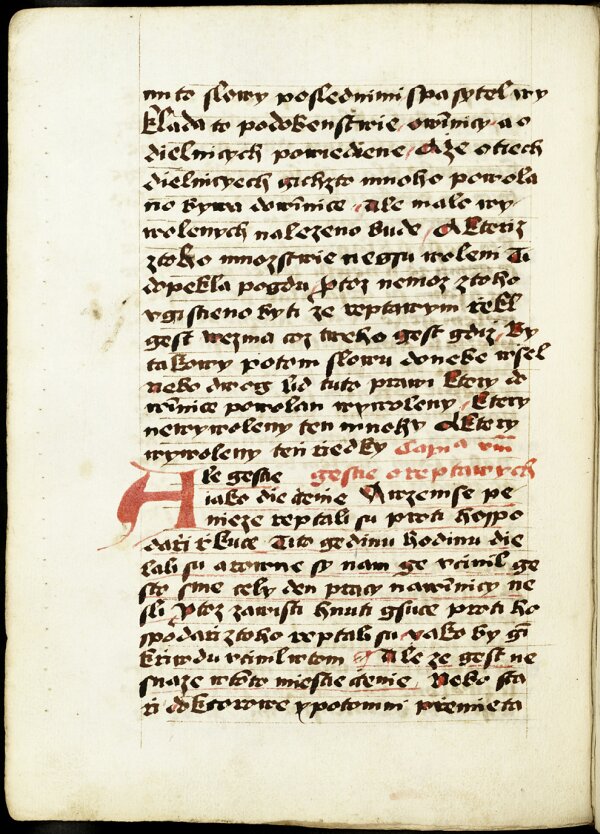 mito slowy poslednimi spasytel wy
klada to podobenstwie owinnicy a o
dielnicych powiediene Aze o tiech
dielnicyech gichzto mnoho powola
no bywa dowinnice Ale malo wy
wolenych nalezeno bude A kteriz
ztoho mnozstwie negsu woleni Ti
dopekla pogdu Protoz nemoz ztoho
vgistieno byti ze reptawym rekl
gest wezma coz tweho gest gdiz By
takowy potom slowu do nebe wsel
nebo dwog lid tuto prawi ktery do
winnice powolan wywoleny ktery
newywoleny ten mnohy A ktery
wywoleny ten riedky Capia viii
Ale gestie gestie o reptawych
iako die cienie A wzemse pe
nieze reptali su proti hospo
dari rkuce Tito gedinu hodinu die
lali su a rowne sy nam ge vcinil ge
sto sme cely den pracy na winnicy ne
sli Protoz zawisti hnuti gsuce proti ho
spodari ztoho reptali su yako by gim
kriwdu vcinil wtom Ale ze gest ne
snaze wtomto miestie cienie Nebo sta
ri doktorowe y potomni premieta